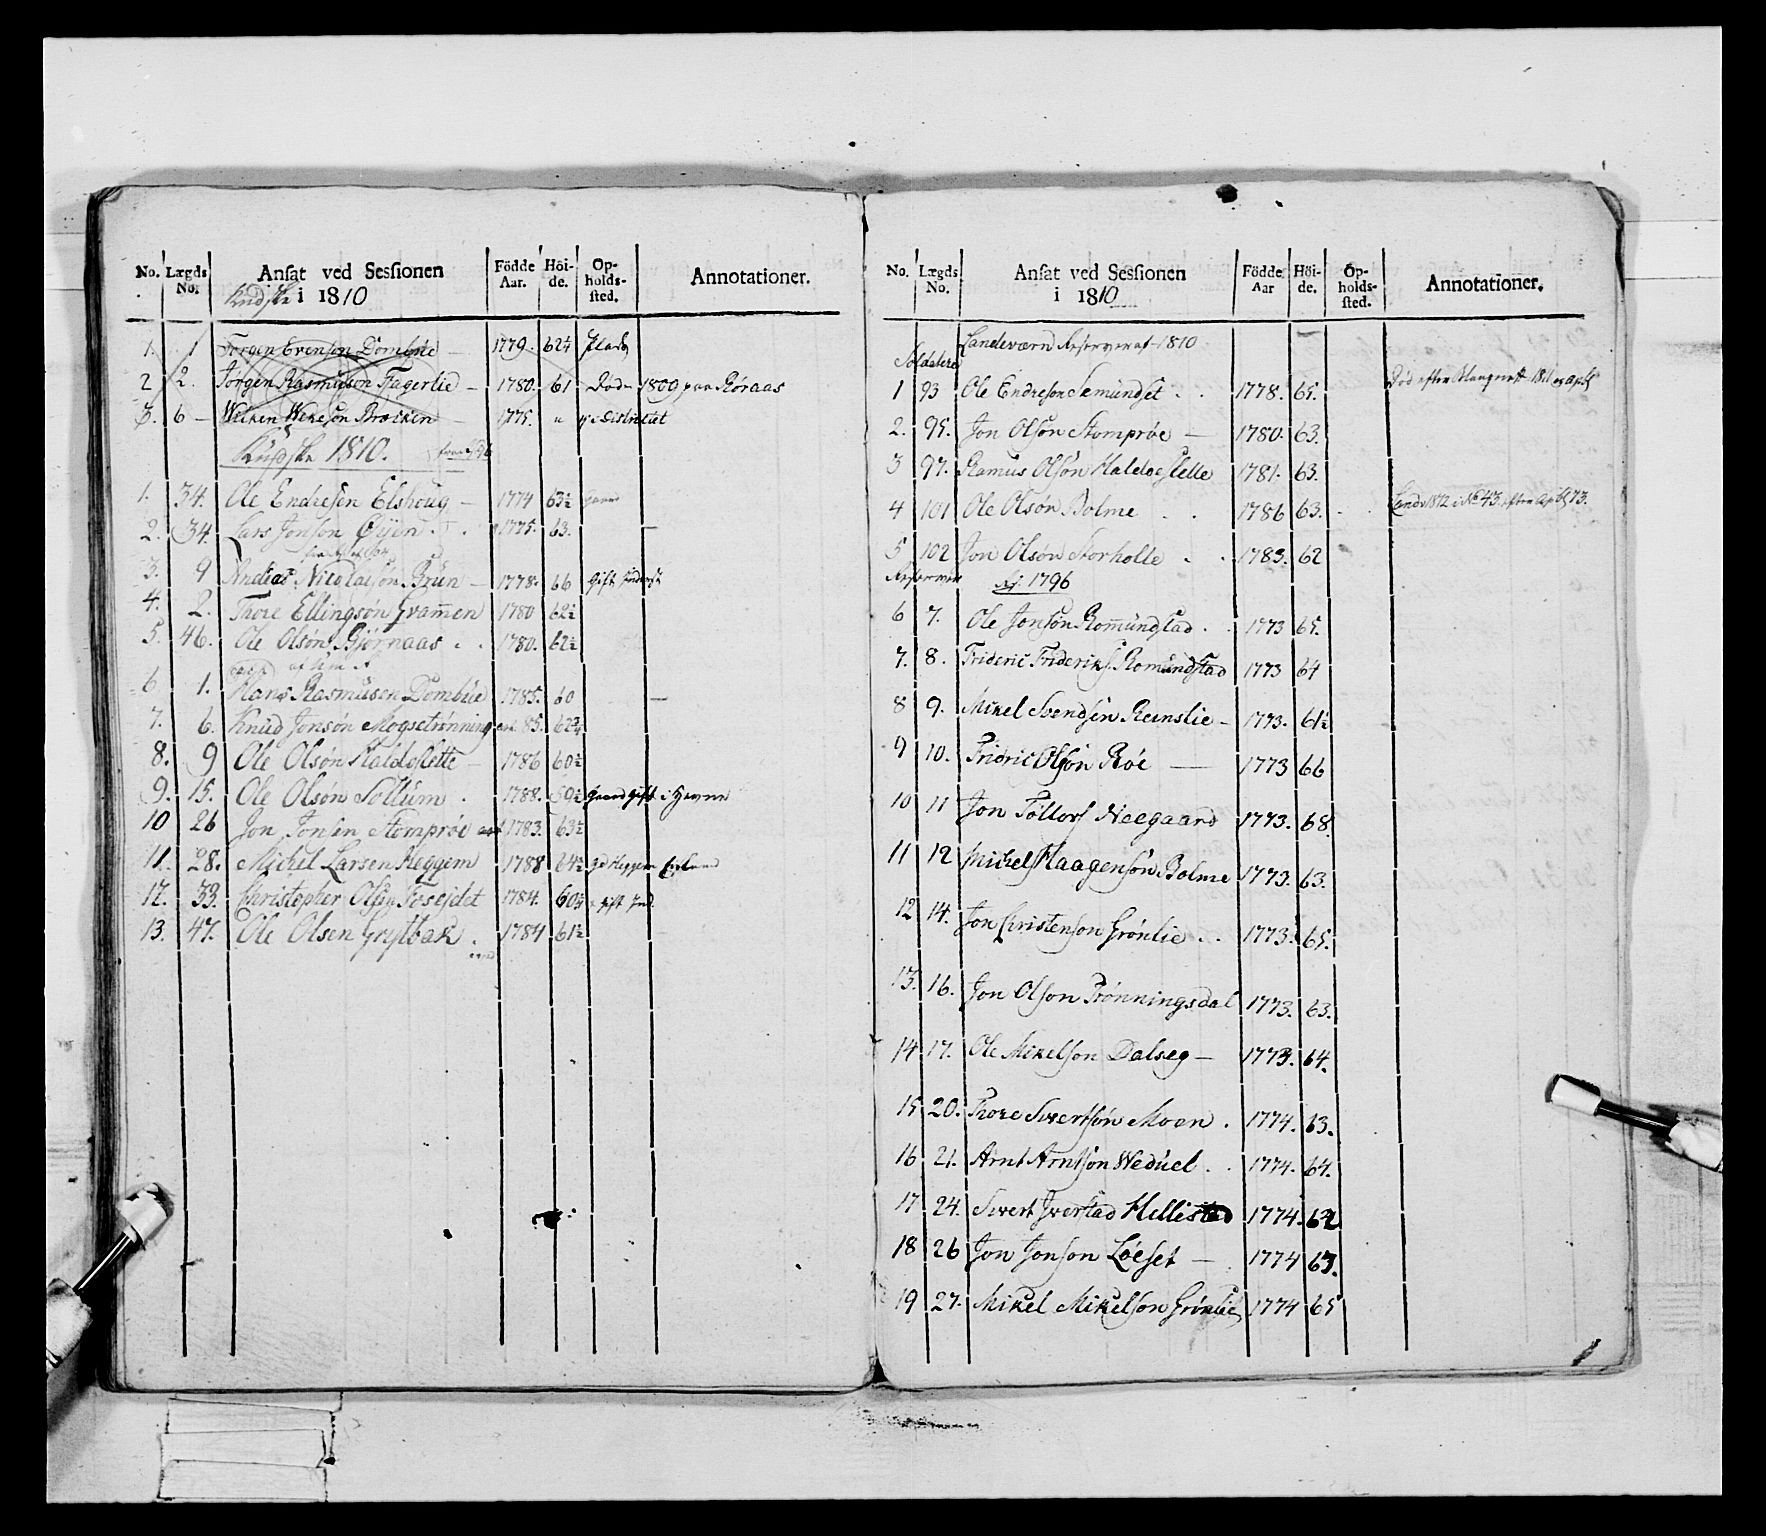 No. Lægds No. Ansat ved Sessionen i 1810 Födde Aar. Höide. Opholdssted. Annotationer.
Kudske
1. 1 Jörgen Evensøn Dombüe - 1779. 62¼
2 2. Jörgen Rasmusson Fagerlie - 1780. 61 Död 1809 paa Röraas
3. 6 - 1775. "
Kudske 1810.
1. 34. Ole Endresen Elshoug - 1774 63½
2. 34. Lars Jonson Öyen . . 1775. 63. -
3. 9 Andreas Nicolaisön Brün - 1778. 66 Gift Inderst
4. 2. Thore Ellingsøn Gvammen 1780 62½
5. 46. Ole Olsøn Bjørnaas . . 1780. 62½
6 1. Hans Rasmusen Dombüe 1785. 60 -
7. 6. Knud Jonsøn Mogsetrønning 85. 62¾
8. 9 Ole Olsøn Haldoslette - 1786 60½
9. 15. Ole Olsøn Sollum . 1788. 59½ Gaard gift i Hevne
10 26 Jon Jonsen Stomprøe 1783. 63½
11. 28. Michel Larsen Heggem 1788 64½ Heggem
12. 33. Christopher Olsen 1784. 60¾ gift Ind.
13. 47. Ole Olsen Grytbak . 1784 61½
No. Lægds No. Ansat ved Sessionen i 1810 Födde Aar Höide. Opholdssted. Annotationer.
Landeværn Reserver af 1810
Soldatere
1 93 Ole Endreson Semundset . . 1778. 65. Död efter Mangnott 1811
2. 95. Jon Olsøn Stomprøe - 1780. 63.
3 97. Ramus Olsøn Haldoeslette 1781. 63.
4 101 Ole Olsøn Bolme . . 1786 63. Landv 1812 i No 43. efter
5 102 Jon Olsøn Storholte . . 1783. 62
Reserver Af 1796
6 7. Ole Jonsøn Romündstad . . 1773 65.
7. 8. Frideric Frideriks. Romündstad 1773 64
8 9. Mikel Svendsen Reinslie - 1773. 61½
9 10. Fridric Olsøn Röe - 1773 66
10 11 Jon Tollofs Neegaard 1773. 68.
11 12 Michel Haagensøn Bolme 1773. 63.
12 14. Jon Christenson Grönlie . . 1773. 65.
13. 16. Jon Olson Trönningsdal 1773. 63.
14 17. Ole Mikelson Dalseg - 1773. 64.
15 20. Thore Sivertsøn Moen . 1774. 63.
16 21. Arnt Arntson Weduel . . 1774. 64.
17 24. Sivert Iverstad Hellistad 1774. 62
18 26 Jon Jonson Löeset - 1774 63.
19 27. Mikel Mikelson Grönlie 1774 65